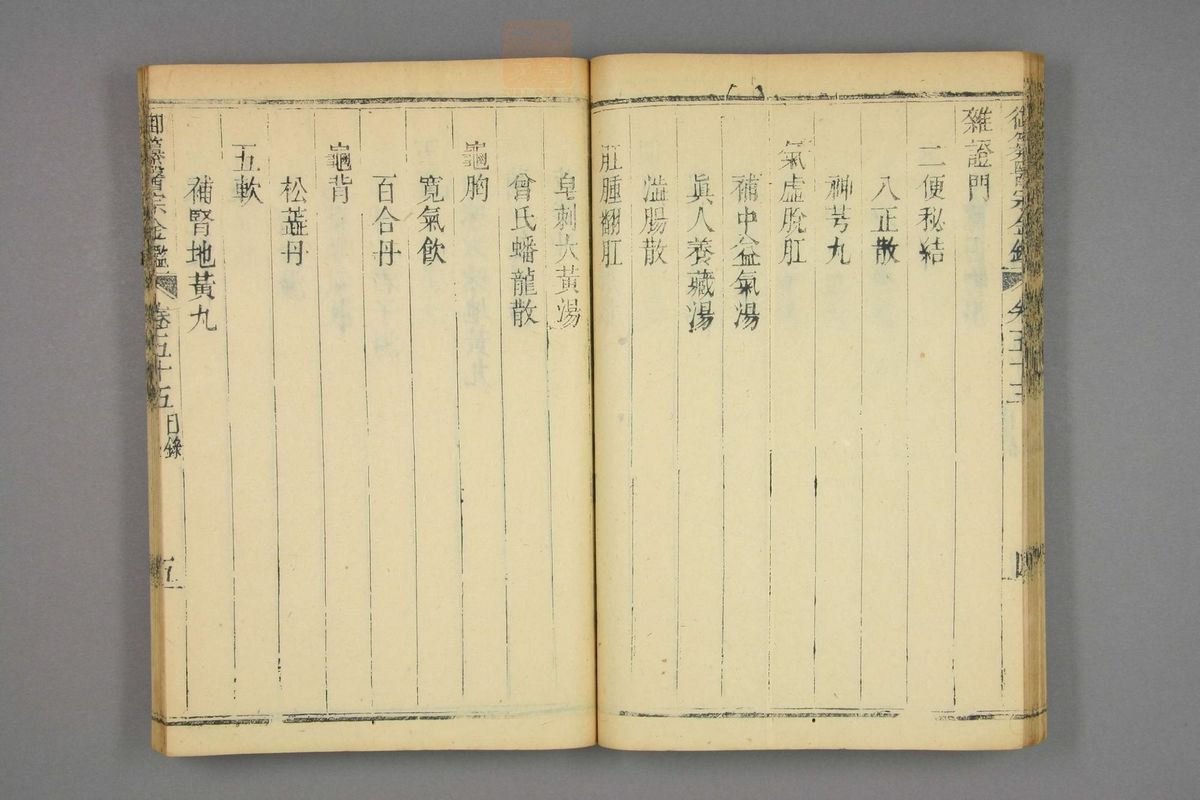 御纂醫宗金鑑 卷五十五
四
雜證門
二便秘結
八正散
神芎丸
氣虛脫肛
補中益氣湯
眞人養藏湯
澁腸散
肛腫翻肛
皂刺大黃湯
曾氏蟠龍散
龜胸
寬氣飲
百合丹
龜背
松蘂丹
五軟
補腎地黃丸
御纂醫宗金鑑 卷五十五 目錄
五